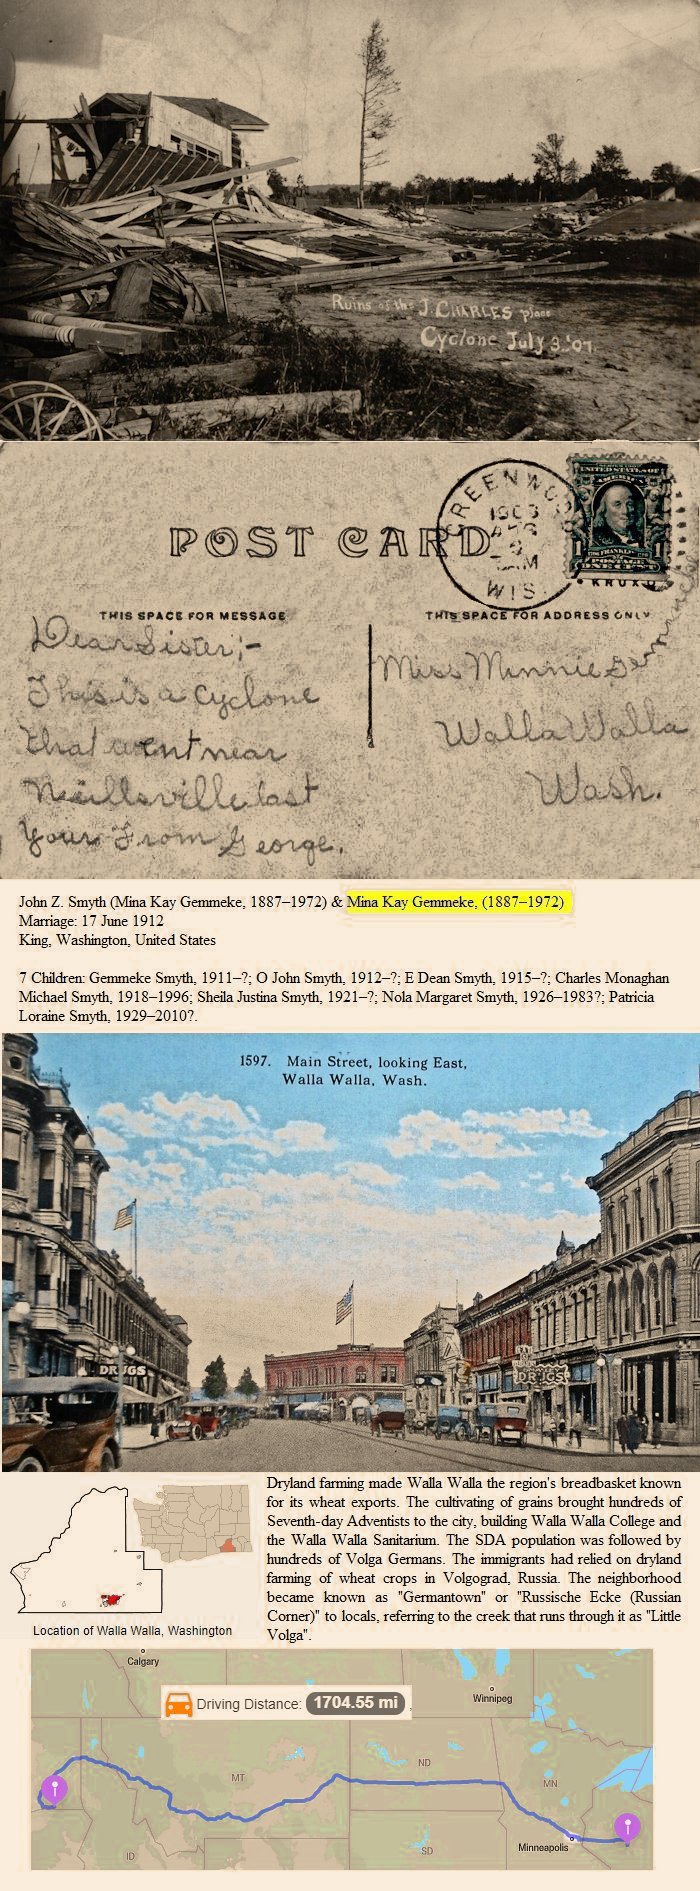 Ruins of the J. CHARLES place
Cyclone July 3. '07.
GREENWOOD
WIS.
UNITED STATES OF
AMERICA
POSTAGE
ONE CENT
POST CARD
THIS SPACE FOR MESSAGE
THIS SPACE FOR ADDRESS ONLY
Dear Sister;-
This is a cyclone
that went near
Neillsville last
Your From George.
Miss Minnie
Walla Walla
Wash.
John Z. Smyth (Mina Kay Gemmeke, 1887–1972) & Mina Kay Gemmeke, (1887–1972)
Marriage: 17 June 1912
King, Washington, United States
7 Children: Gemmeke Smyth, 1911–?; O John Smyth, 1912–?; E Dean Smyth, 1915–?; Charles Monaghan
Michael Smyth, 1918–1996; Sheila Justina Smyth, 1921–?; Nola Margaret Smyth, 1926–1983?; Patricia
Loraine Smyth, 1929–2010?.
1597. Main Street, looking East,
Walla Walla, Wash.
DRUGS
DRUGS
Dryland farming made Walla Walla the region's breadbasket known
for its wheat exports. The cultivating of grains brought hundreds of
Seventh-day Adventists to the city, building Walla Walla College and
the Walla Walla Sanitarium. The SDA population was followed by
hundreds of Volga Germans. The immigrants had relied on dryland
farming of wheat crops in Volgograd, Russia. The neighborhood
became known as "Germantown" or "Russische Ecke (Russian
Corner)" to locals, referring to the creek that runs through it as "Little
Volga".
Location of Walla Walla, Washington
Calgary
Winnipeg
Driving Distance: 1704.55 mi
MT
ND
MN
ID
SD
Minneapolis